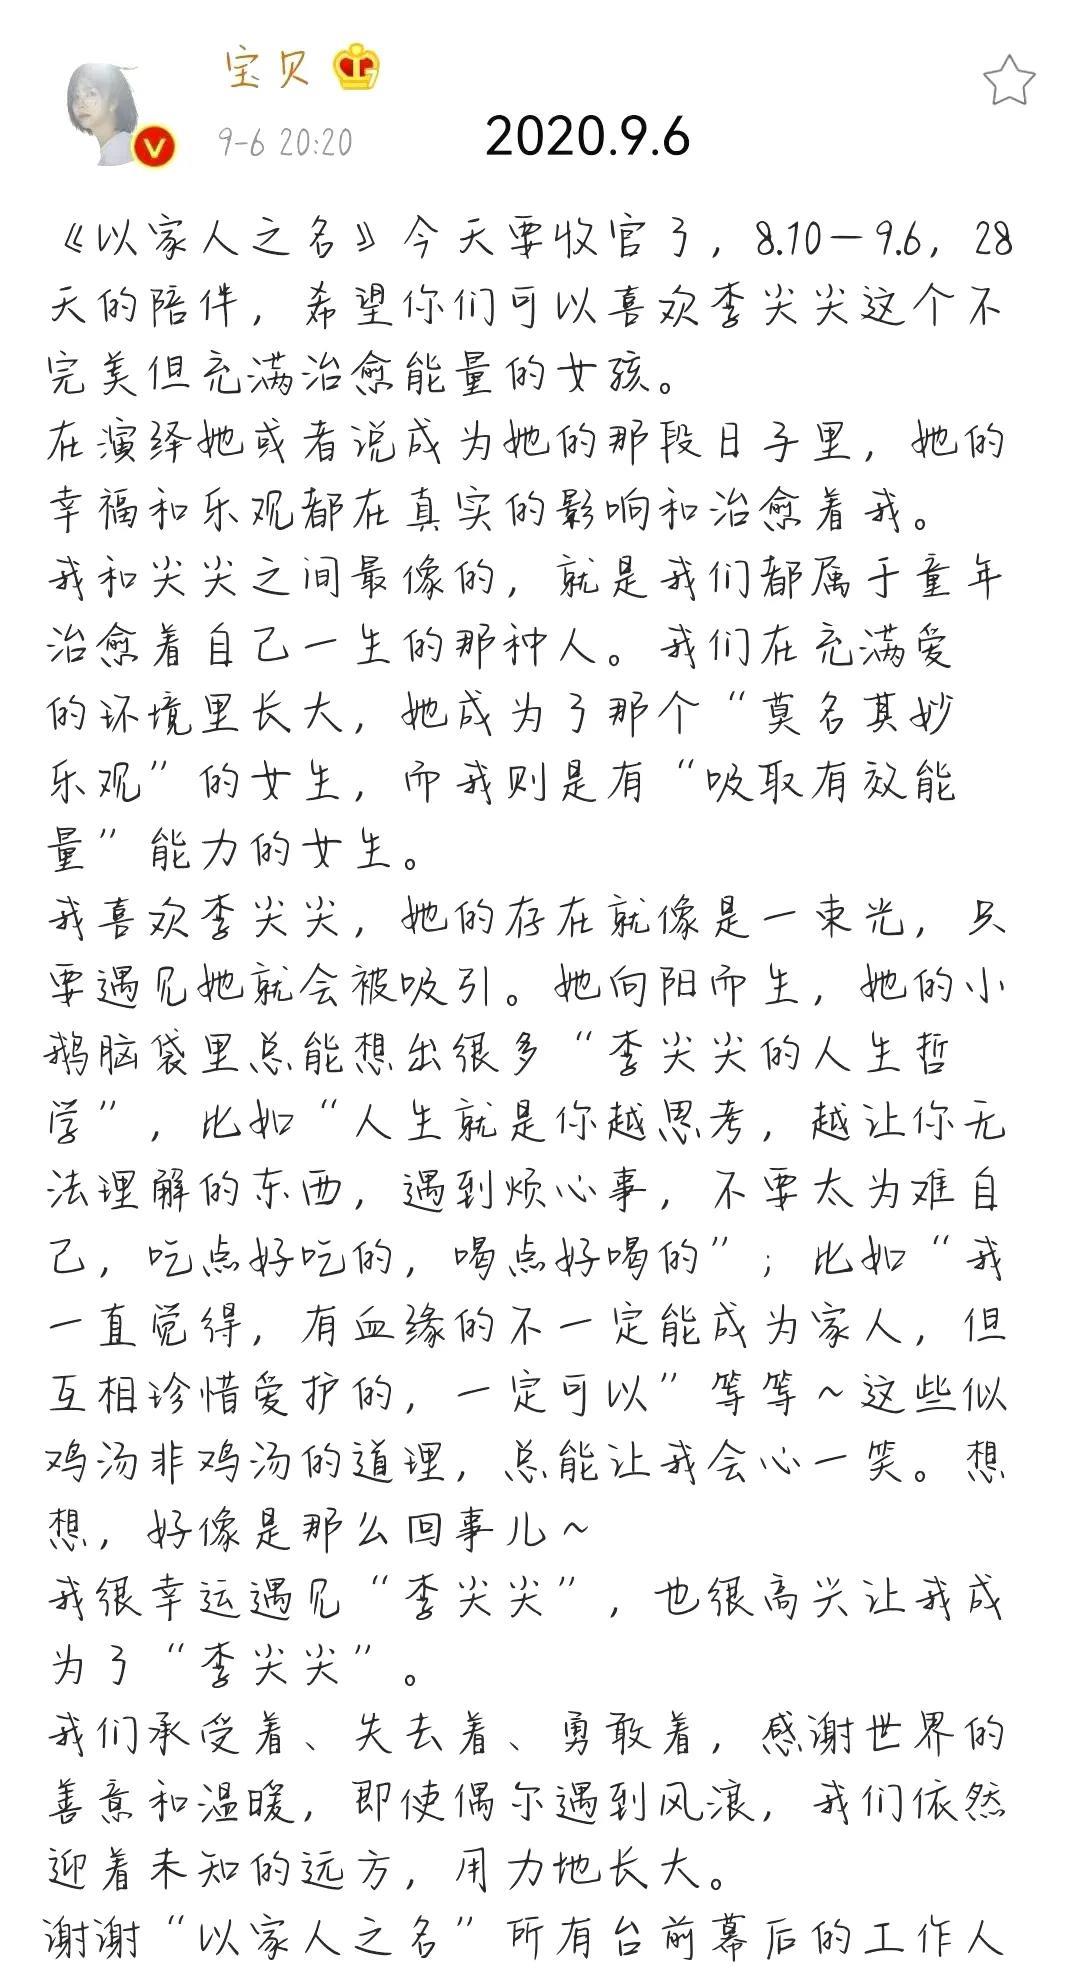 宝贝
9-6 20:20
2020.9.6
《以家人之名》今天要收官了，8.10—9.6，28
天的陪伴，希望你们可以喜欢李尖尖这个不
完美但充满治愈能量的女孩。
在演绎她或者说成为她的那段日子里，她的
幸福和乐观都在真实的影响和治愈着我。
我和尖尖之间最像的，就是我们都属于童年
治愈着自己一生的那种人。我们在充满爱
的环境里长大，她成为了那个“莫名其妙
乐观”的女生，而我则是有“吸取有效能
量”能力的女生。
我喜欢李尖尖，她的存在就像是一束光，只
要遇见她就会被吸引。她向阳而生，她的小
鹅脑袋里总能想出很多“李尖尖的人生哲
学”，比如“人生就是你越思考，越让你无
法理解的东西，遇到烦心事，不要太为难自
己，吃点好吃的，喝点好喝的”；比如“我
一直觉得，有血缘的不一定能成为家人，但
互相珍惜爱护的，一定可以”等等～这些似
鸡汤非鸡汤的道理，总能让我会心一笑。想
想，好像是那么回事儿～
我很幸运遇见“李尖尖”，也很高兴让我成
为了“李尖尖”。
我们承受着、失去着、勇敢着，感谢世界的
善意和温暖，即使偶尔遇到风浪，我们依然
迎着未知的远方，用力地长大。
谢谢“以家人之名”所有台前幕后的工作人